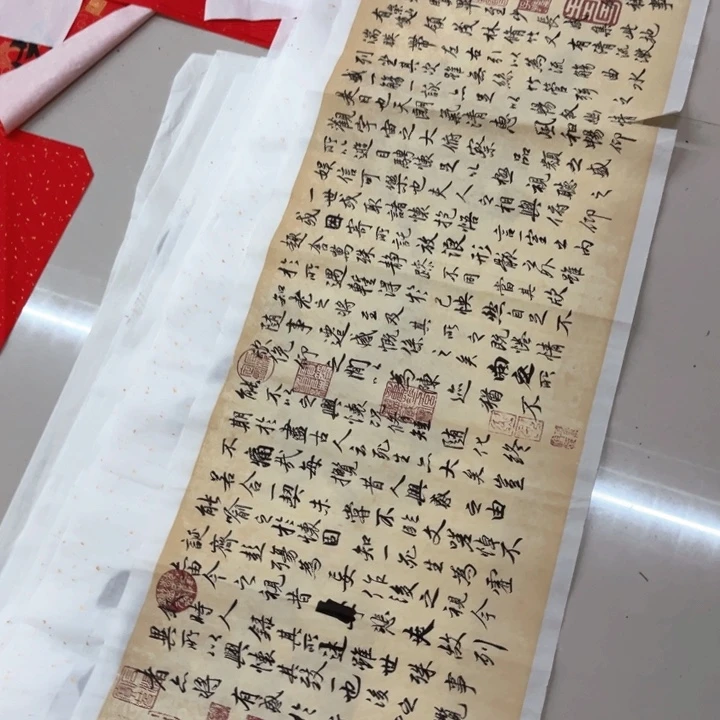 畢至少長咸集此地
有崇山峻領茂林脩竹又有清流激
湍暎帶左右引以為流觴曲水
列坐其次雖無絲竹管弦之
盛一觴一詠亦足以暢敘幽情
是日也天朗氣清惠風和暢仰
觀宇宙之大俯察品類之盛
所以遊目騁懷足以極視聽之
娛信可樂也夫人之相與俯仰
一世或取諸懷抱悟言一室之內
或因寄所託放浪形骸之外雖
趣舍萬殊靜躁不同當其欣
於所遇暫得於己怏然自足不
知老之將至及其所之既惓情
隨事遷感慨係之矣向之所
欣俛仰之閒以為陳迹猶不
能不以之興懷況脩短隨化終
期於盡古人云死生亦大矣豈
不痛哉每攬昔人興感之由
若合一契未嘗不臨文嗟悼不
能喻之於懷固知一死生為虛
誕齊彭殤為妄作後之視今
亦由今之視昔悲夫故列
敘時人錄其所述雖世殊事
異所以興懷其致一也後之攬
者亦將有感於